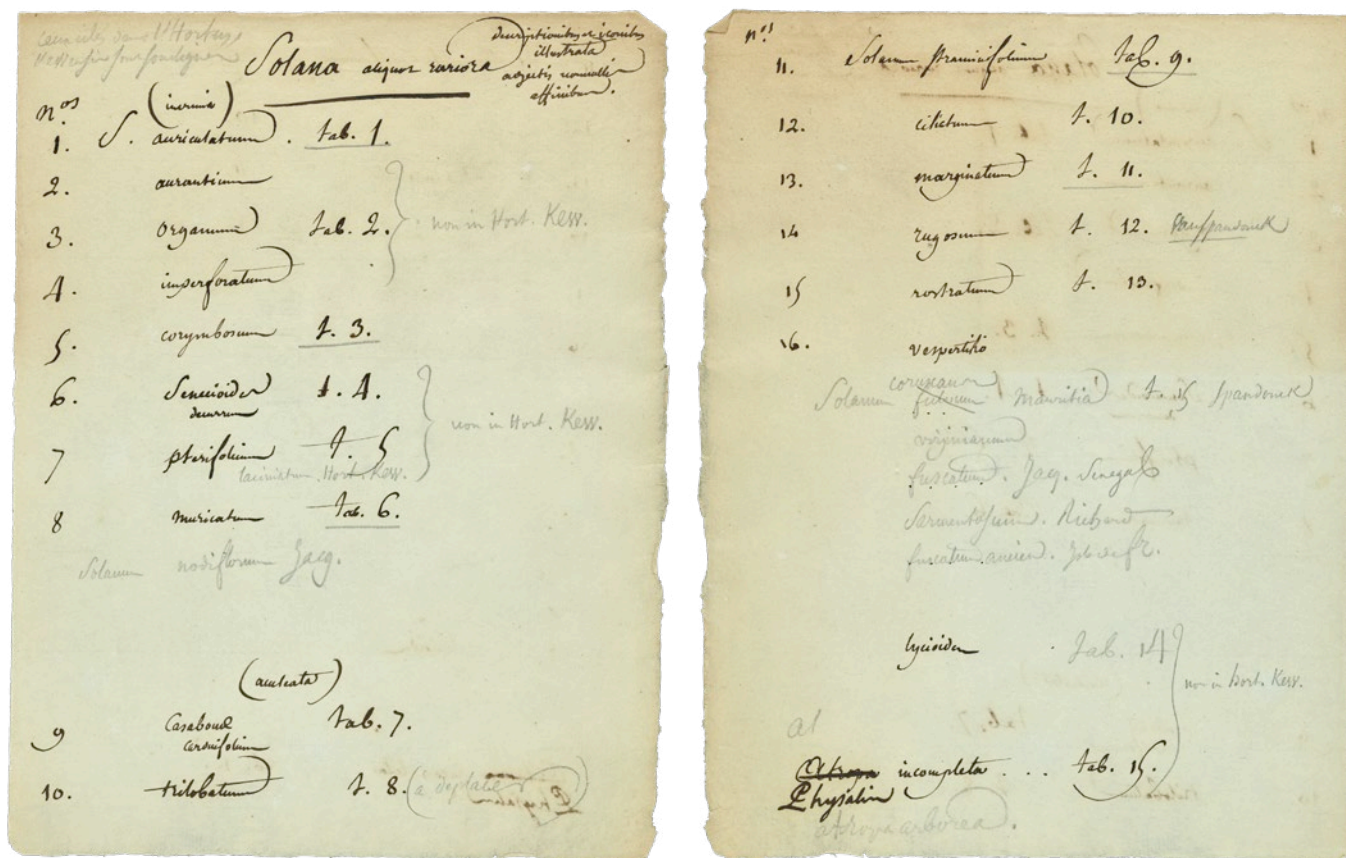 Solana aliquot rariora
descriptionibus et iconibus
illustrata
adjectis nonnullis
affinibus.
n.os
(inermia)
1. S. auriculatum. tab. 1.
2. auranticum
3. organum tab. 2. non in Hort. Kew.
4. imperforatum
5. corymbosum t. 3.
6. Senecioides t. 4.
decurrens
non in Hort. Kew.
7 pterifolium t. 5
laciniatum. Hort. Kew.
8 muricatum tab. 6.
Solanum nodiflorum Jacq.
(aculeata)
9 Casabonæ tab. 7.
10. trilobatum t. 8. (à déplacer)
Physalin
n.os
11. Solanum stramonifolium tab. 9.
12. ciliatum t. 10.
13. marginatum t. 11.
14 rugosum t. 12. Vanspandonck
15 rostratum t. 13.
16. vespertilio
coruscans
Solanum fulvum Mauritia t. 15 Spandonck
virginianum
fuscatum. Jacq. Senegal
Sarmentosum. Richard
fuscatum ancien.
lycioides tab. 14
non in Hort. Kew.
at
Atropa incompleta ... tab. 15.
Physalin
atropa arborea.